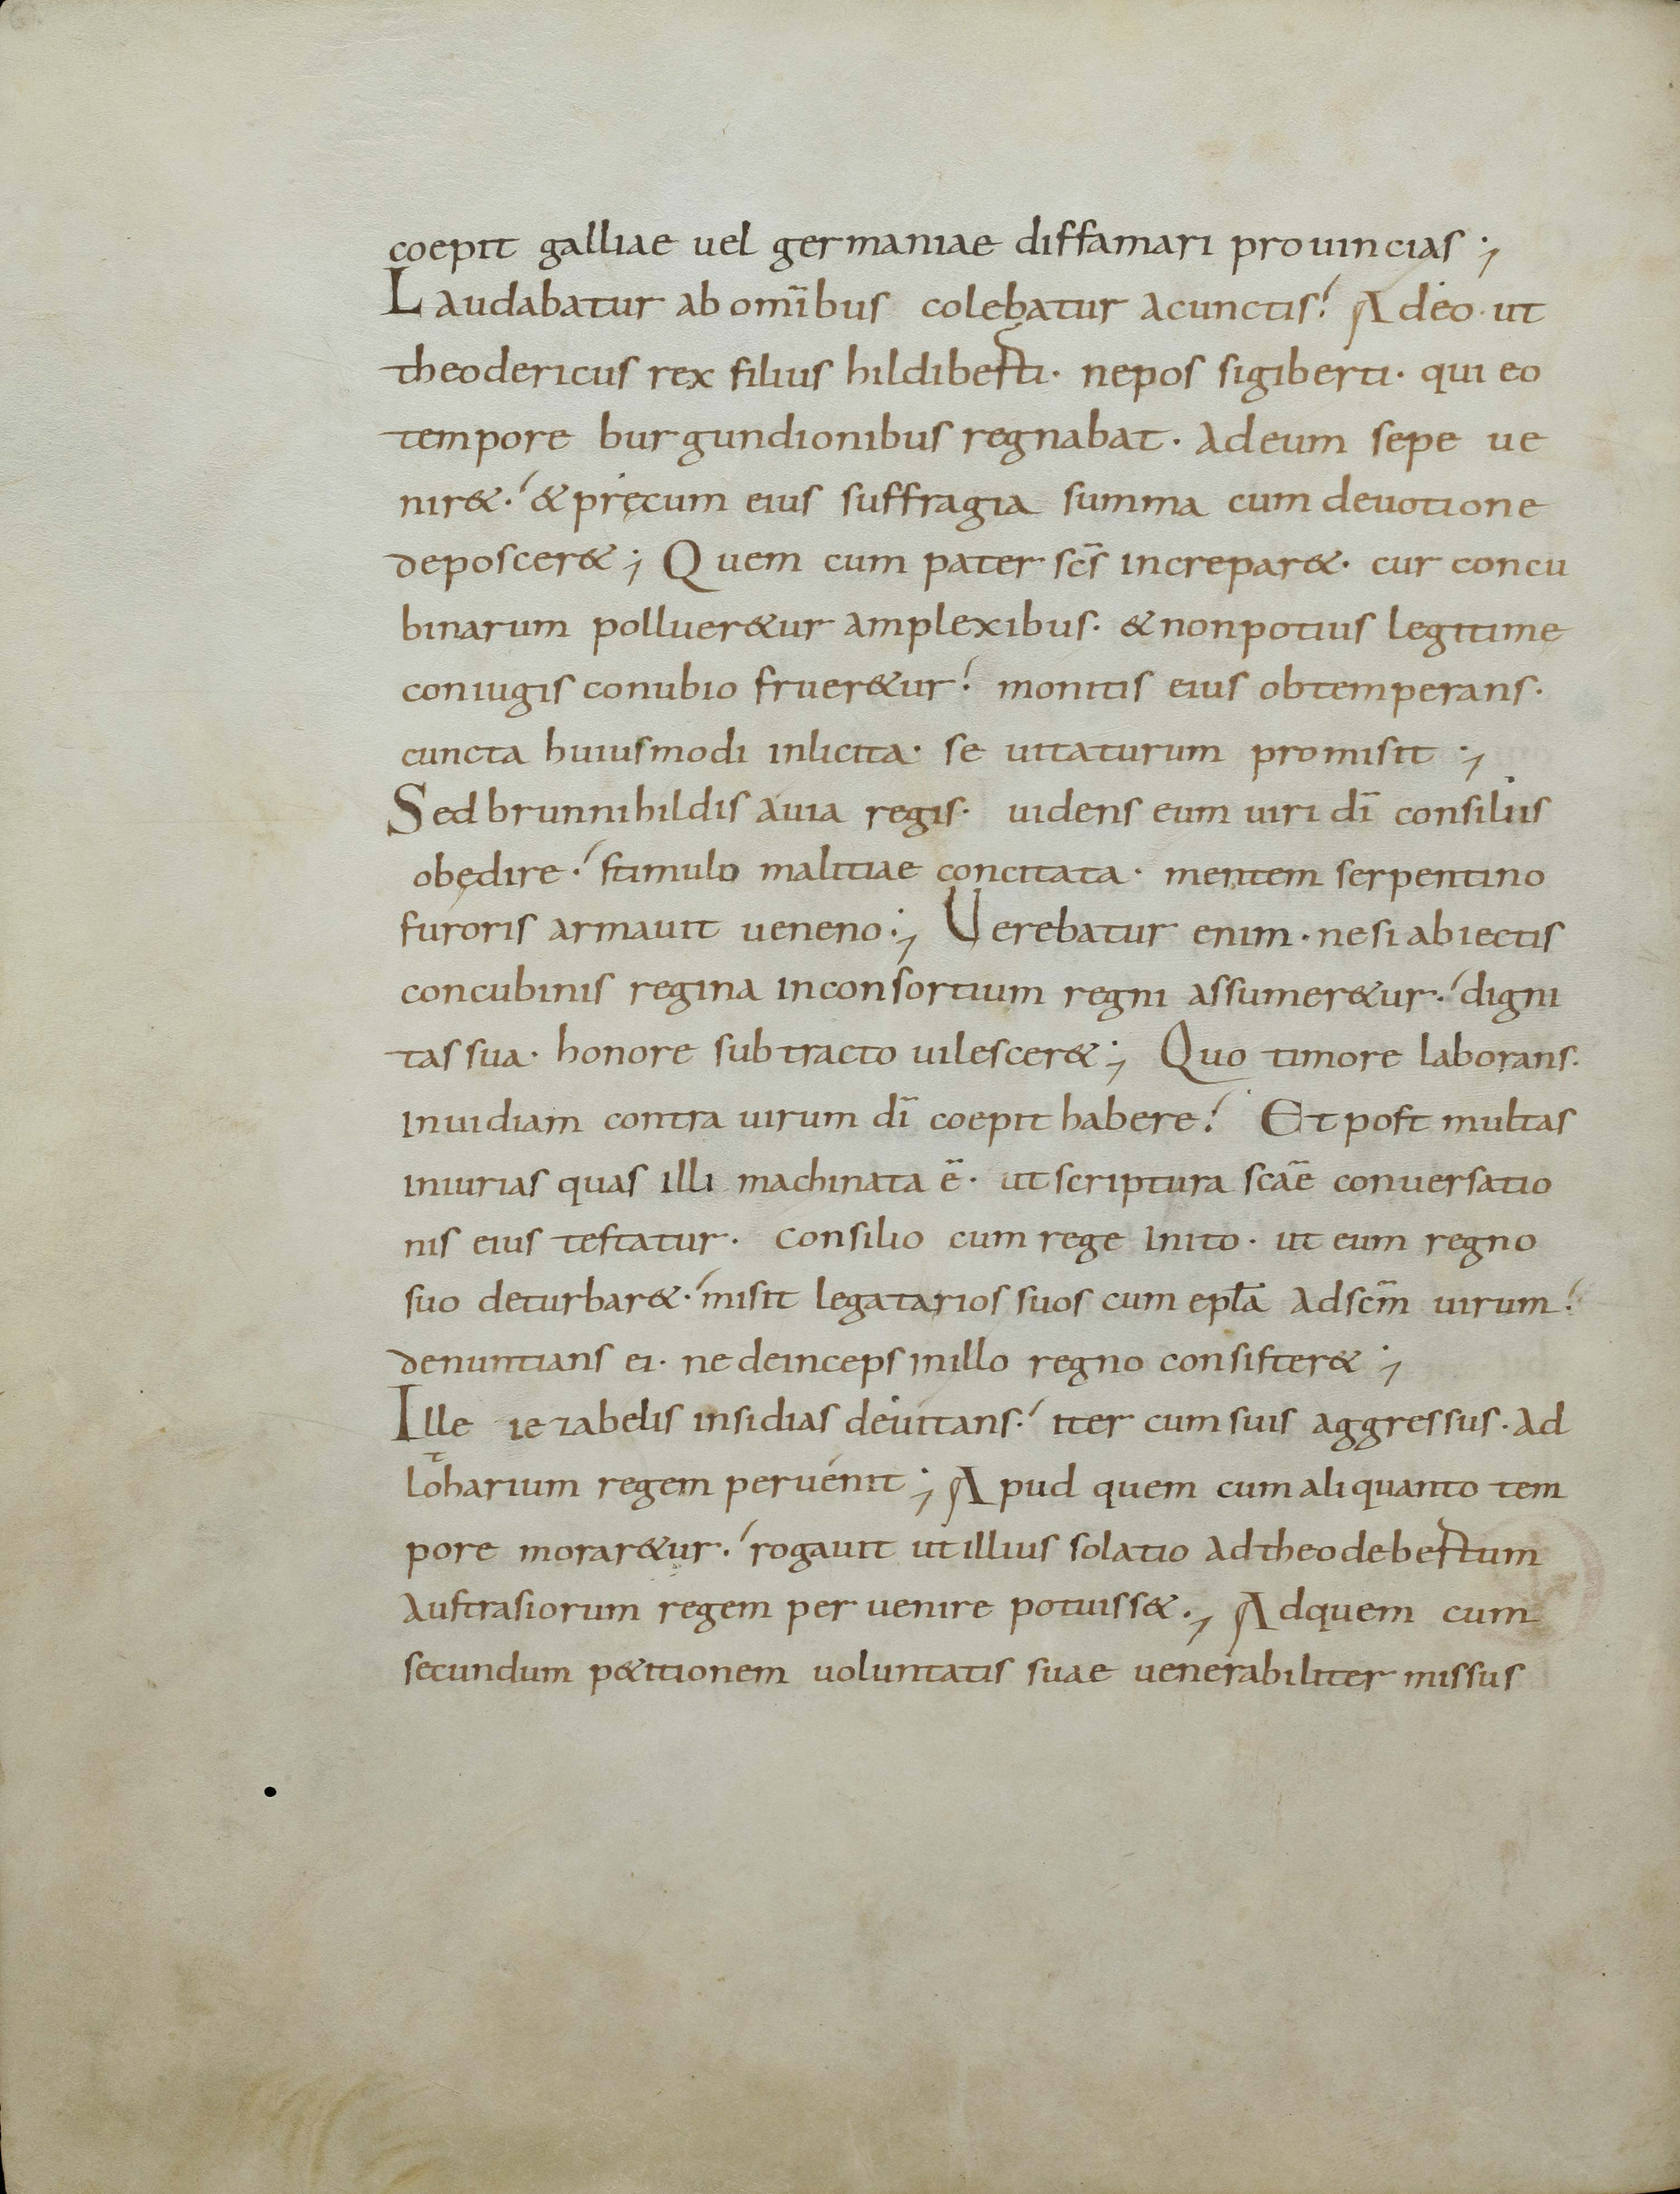 coepit galliae uel germaniae diffamari prouincias ;
Laudabatur ab om̅ibus colebatur acunctis! Adeo · ut
theodericus rex filius hildiberti · nepos sigiberti · qui eo
tempore burgundionibus regnabat · adeum sepe ue
nir& ·! & pręcum eius suffragia summa cum deuotione
deposcer& ; Quem cum pater sc̅s increpar& · cur concu
binarum polluer&ur amplexibus · & nonpotius legitime
coniugis conubio fruer&ur! monitis eius obtemperans ·
cuncta huiusmodi inlicita · se uitaturum promisit ;
Sed brunnihildis auia regis · uidens eum uiri di̅ consiliis
obędire ·! stimulo malitiae concitata · mentem serpentino
furoris armauit ueneno ; Uerebatur enim · ne si abiectis
concubinis regina inconsortium regni assumer&ur ·! digni
tas sua · honore subtracto uilescer& ; Quo timore laborans ·
inuidiam contra uirum di̅ coepit habere! Et post multas
iniurias quas illi machinata e̅ · ut scriptura sca̅e conuersatio
nis eius testatur · consilio cum rege inito · ut eum regno
suo deturbar& ·! misit legatarios suos cum epl̅a adsc̅m uirum!
denuntians ei · ne deinceps inillo regno consister& ;
Ille iezabelis insidias deuitans ·! iter cum suis aggressus · ad
lotharium regem peruenit ; Apud quem cum aliquanto tem
pore morar&ur ·! rogauit ut illius solatio ad theodebertum
austrasiorum regem peruenire potuiss& ·; Adquem cum
secundum p&itionem uoluntatis suae uenerabiliter missus